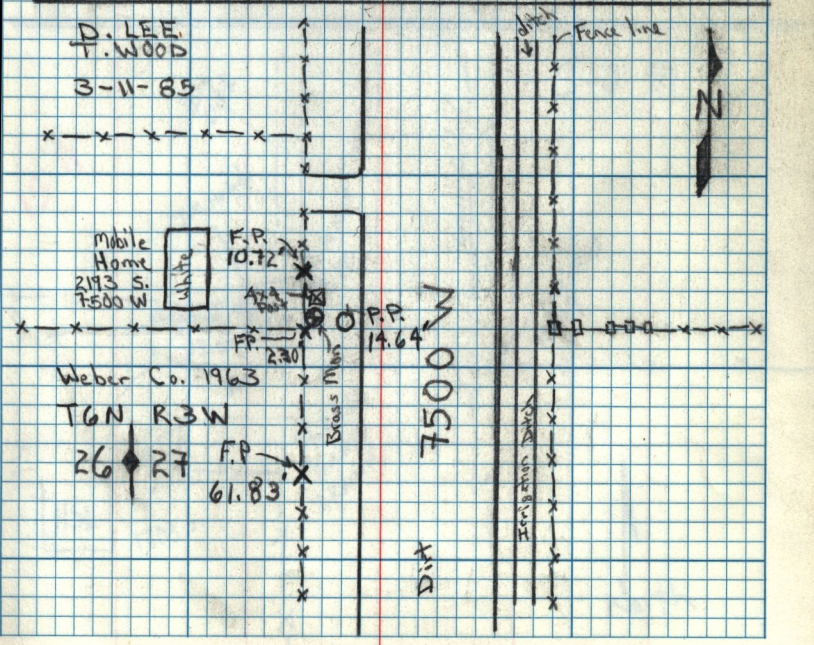 D. LEE.
T. WOOD
3-11-85
ditch
Fence line
N
Mobile
Home
2193 S.
7500 W
White
F.P.
10.72'
4x4
Post
P.P.
14.64'
F.P.
2.30'
Brass Mon
7500 W
Weber Co. 1963
T6N R3W
26 27
F.P
61.83'
Irrigation Ditch
Dirt